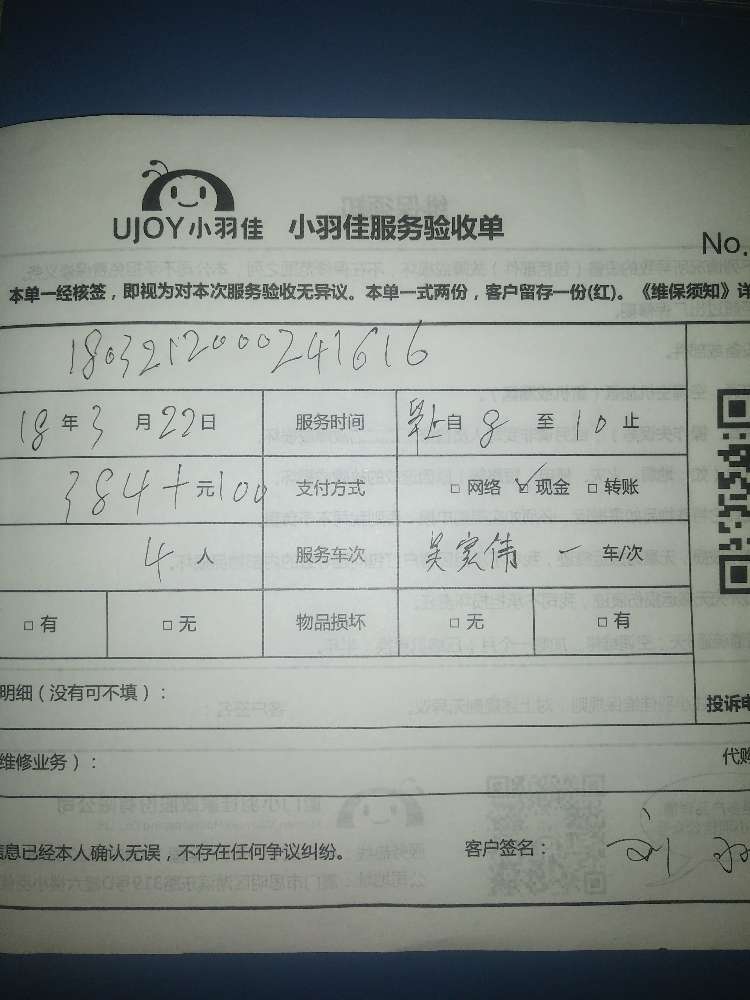 UJOY小羽佳 小羽佳服务验收单
No.
本单一经核签，即视为对本次服务验收无异议。本单一式两份，客户留存一份(红)。《维保须知》详
1803212000241616
18年3月22日 服务时间 自8至10止
384+元100 支付方式 □网络 ☑现金 □转账
4人 服务车次 吴宏伟 一 车/次
□有 □无 物品损坏 □无 □有
明细（没有可不填）：
投诉电
维修业务）：
代购
信息已经本人确认无误，不存在任何争议纠纷。 客户签名： 刘